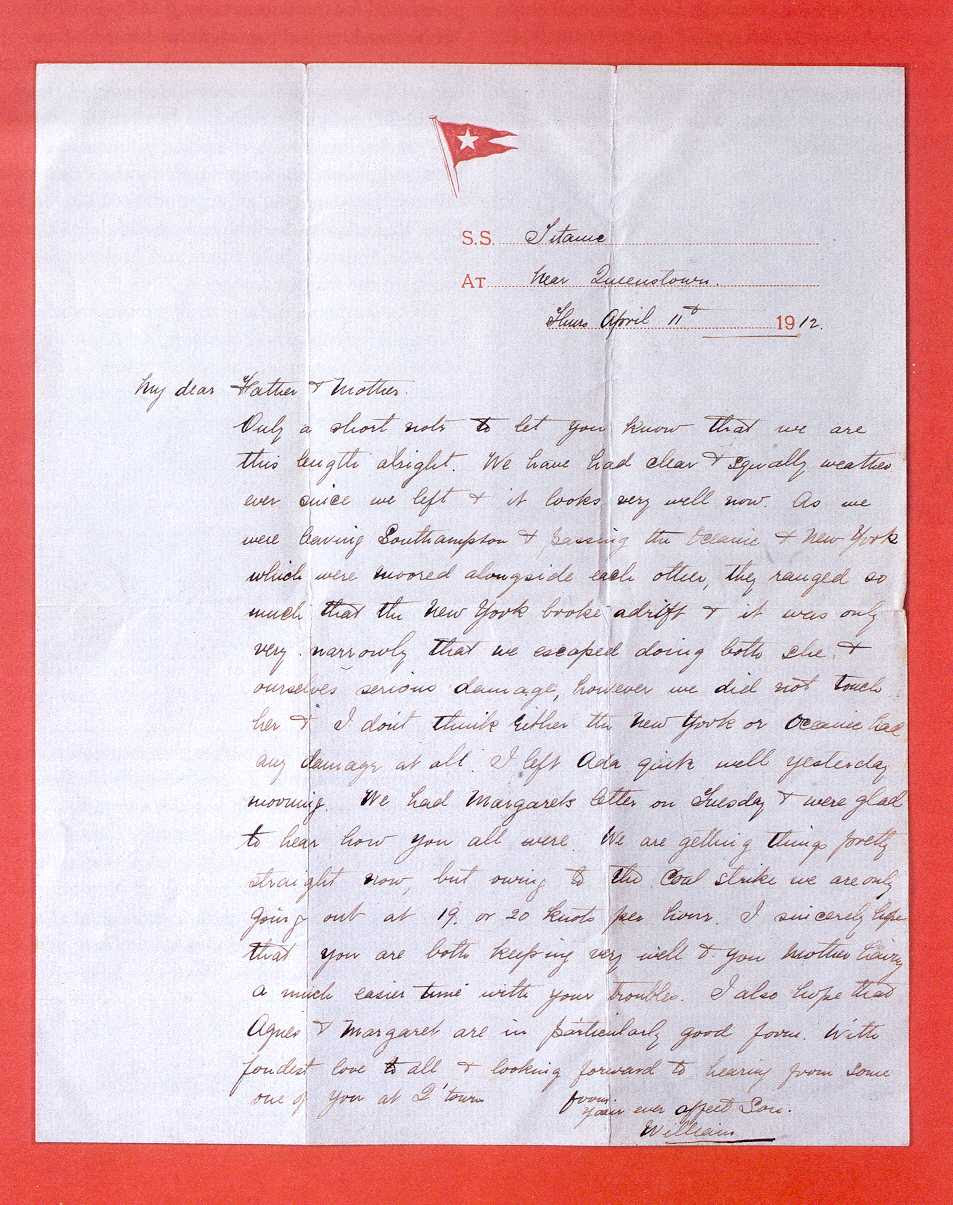 S.S. Titanic
At near Queenstown.
Thurs April 11th 1912.
My dear Father & Mother.
Only a short note to let you know that we are
this length alright. We have had clear & squally weather
ever since we left & it looks very well now. As we
were leaving Southampton & passing the Oceanic & New York
which were moored alongside each other, they ranged so
much that the New York broke adrift & it was only
very narrowly that we escaped doing both she &
ourselves serious damage, however we did not touch
her & I don't think either the New York or Oceanic had
any damage at all. I left Ada quite well yesterday
morning. We had Margarets letter on Tuesday & were glad
to hear how you all were. We are getting things pretty
straight now, but owing to the Coal strike we are only
going out at 19. or 20 knots per hour. I sincerely hope
that you are both keeping very well & you Mother having
a much easier time with your troubles. I also hope that
Agnes & Margaret are in particularly good form. With
fondest love to all & looking forward to hearing from some
one of you at Q'town from
your ever affect Son.
William